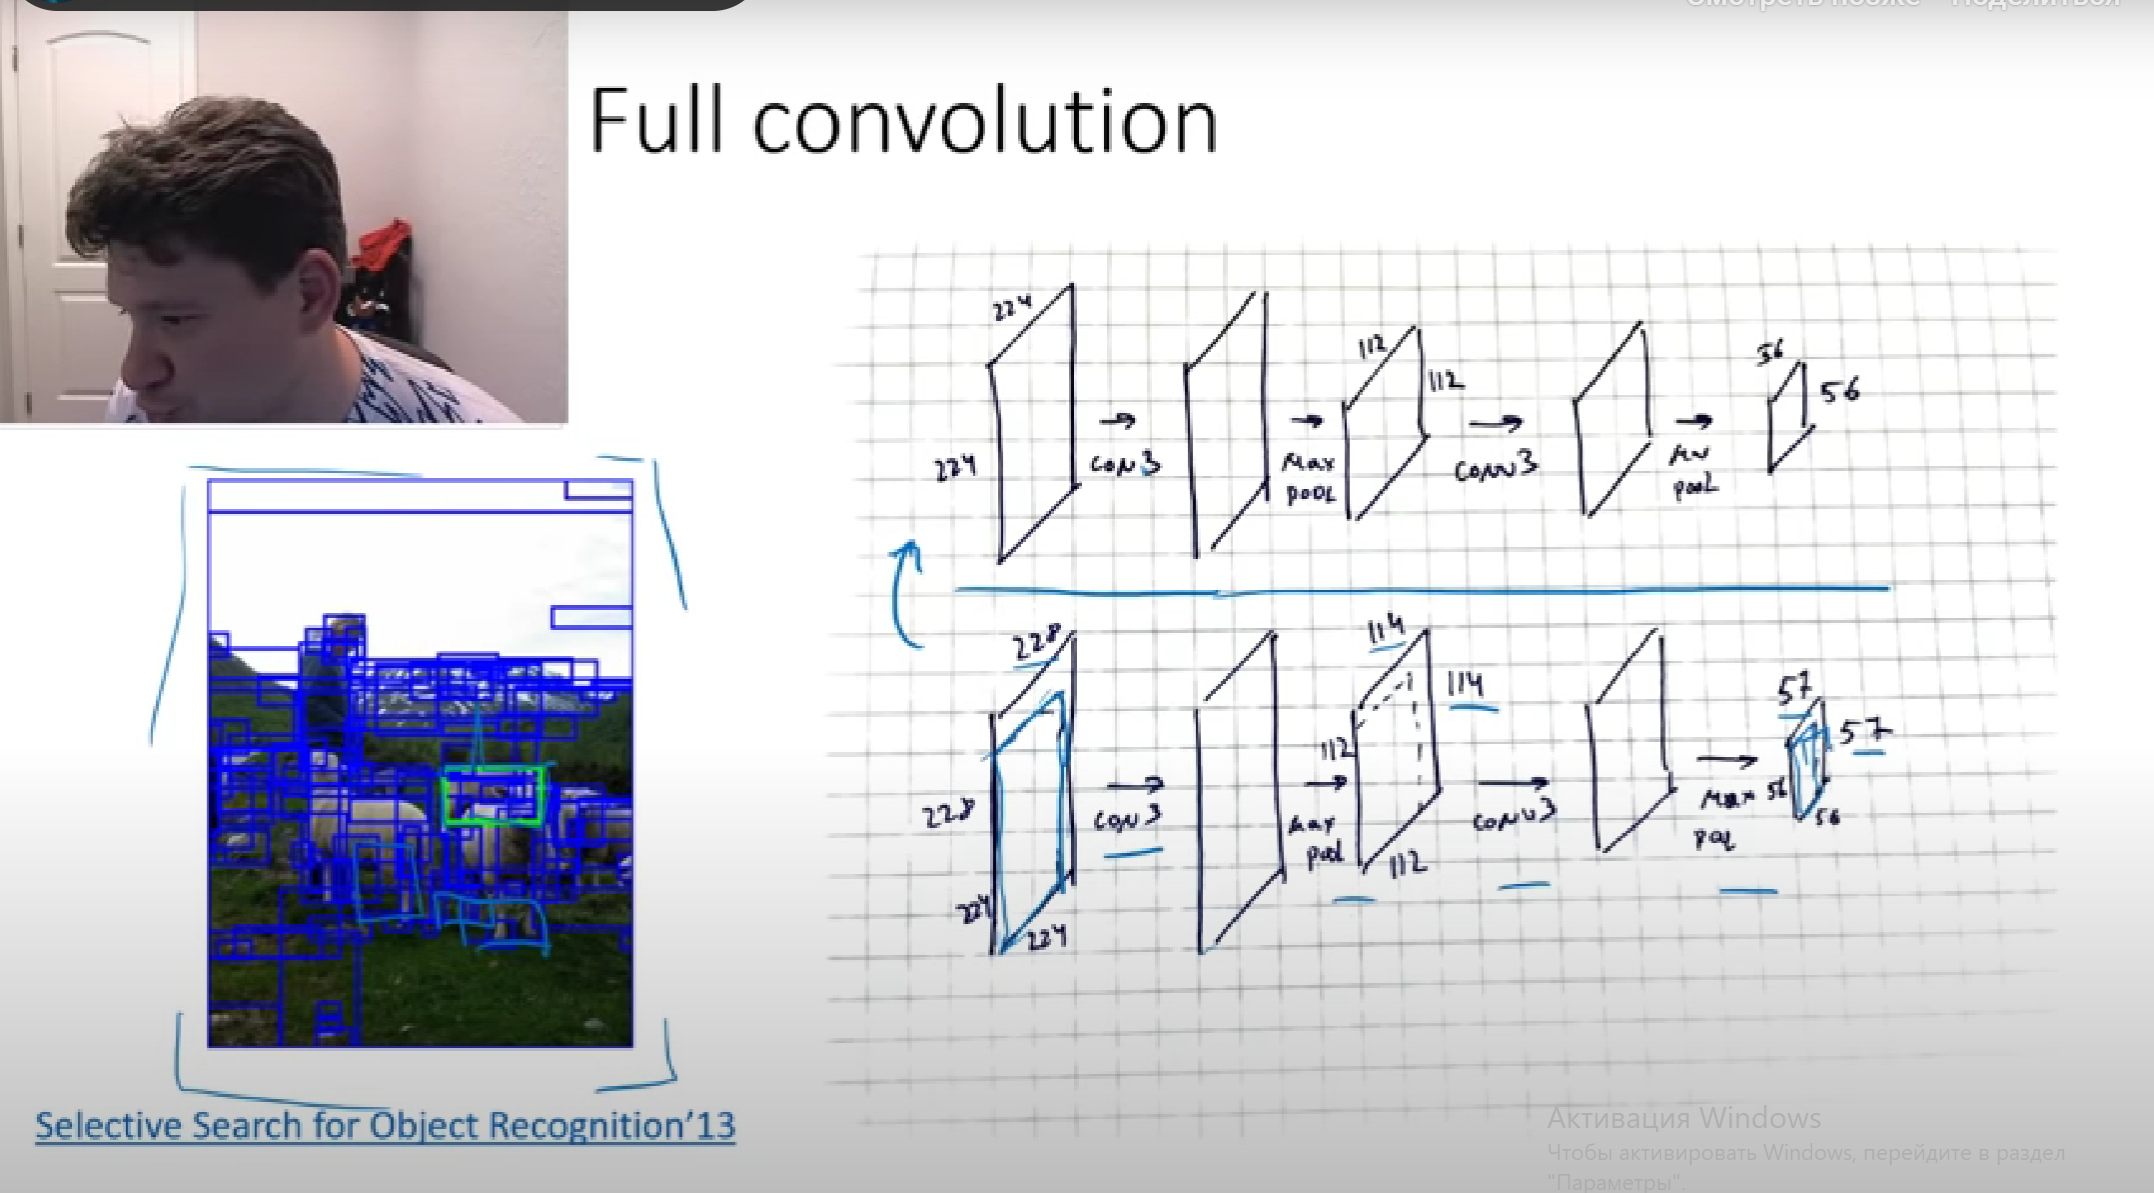 Смотреть позже Поделиться
Full convolution
224
224
CONV 3
MAX
POOL
112
112
CONV 3
POOL
56
56
228
228
224
224
CONV 3
MAX
POOL
114
114
112
112
CONV 3
MAX
POOL
57
57
56
56
Selective Search for Object Recognition’13
Активация Windows
Чтобы активировать Windows, перейдите в раздел
"Параметры".